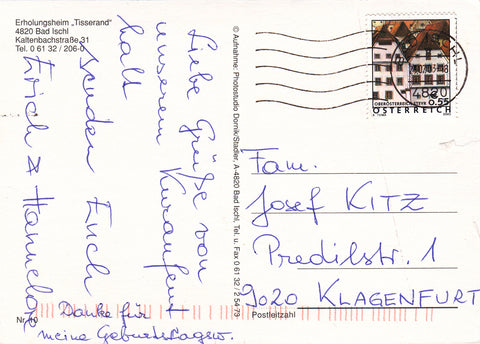 Erholungsheim „Tisserand“
4820 Bad Ischl
Kaltenbachstraße 31
Tel. 0 61 32 / 206-0
Liebe Grüße von
unserem Kuraufent
halt
senden Euch
Erich & Hannelore
Danke für
meine Geburtstagsw.
Nr. 10
© Aufnahme: Photostudio Dornik/Stadler, A-4820 Bad Ischl, Tel. u. Fax 0 61 32 / 2 54 79
4820
OBERÖSTERREICH STEYR
6.55
ÖSTERREICH
Fam.
Josef KITZ
Predilstr. 1
9020 KLAGENFURT
Postleitzahl